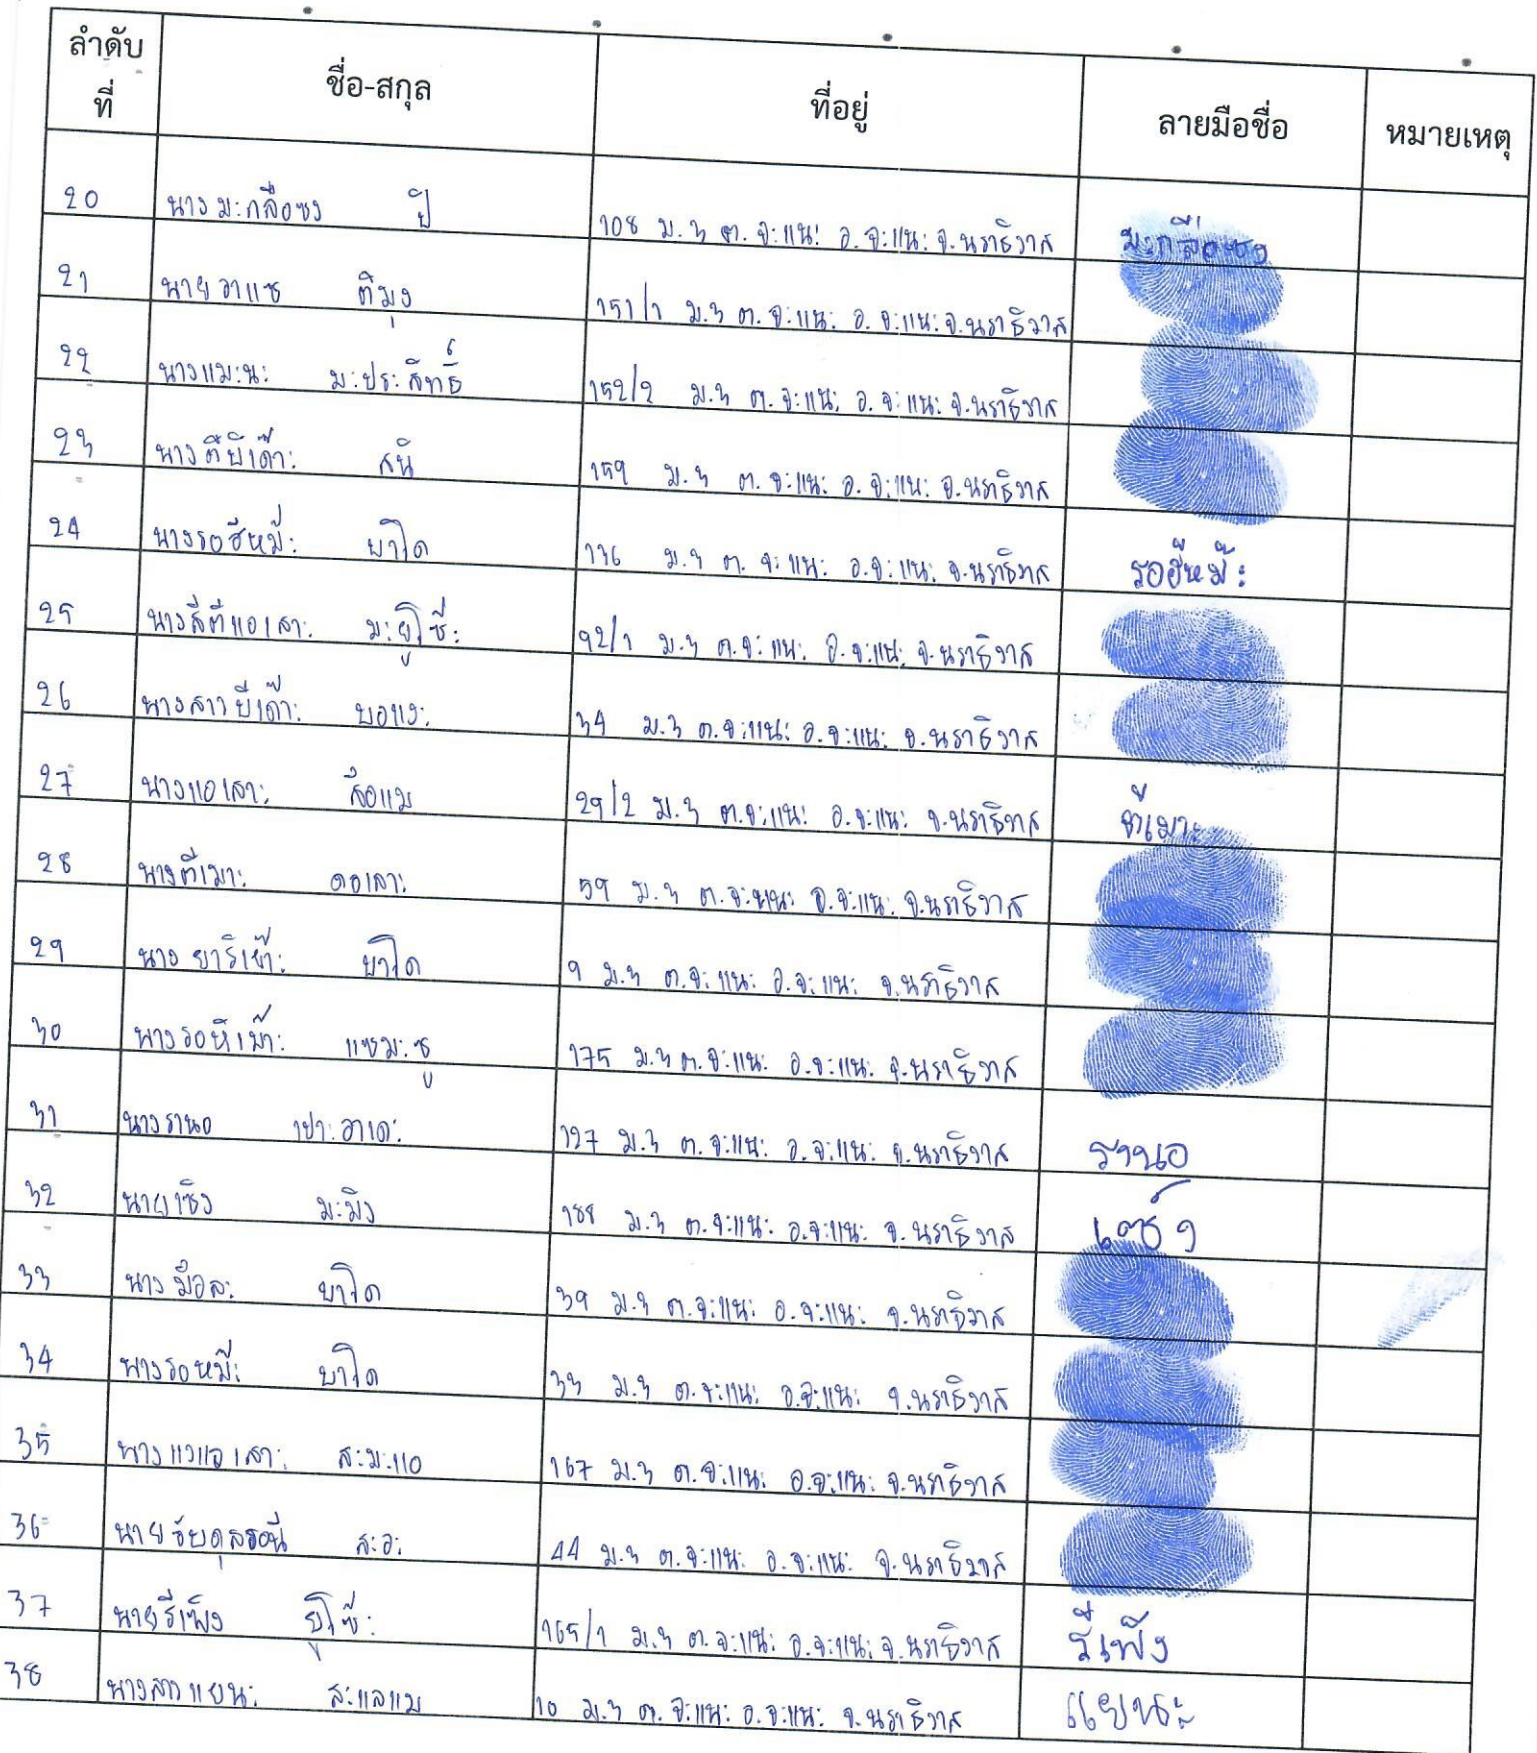 ลำดับที่ ชื่อ-สกุล ที่อยู่ ลายมือชื่อ หมายเหตุ
20 นางมะกลือซง ปิ 108 ม.3 ต.จะแนะ อ.จะแนะ จ.นราธิวาส มะกลือซง
21 นายอาแซ ติมุง 151/1 ม.3 ต.จะแนะ อ.จะแนะ จ.นราธิวาส
22 นางแมะนะ มะประสิทธิ์ 152/2 ม.3 ต.จะแนะ อ.จะแนะ จ.นราธิวาส
23 นางตีบีเด๊าะ สนิ 159 ม.3 ต.จะแนะ อ.จะแนะ จ.นราธิวาส
24 นางรอฮีหม๊ะ บาโด 136 ม.3 ต.จะแนะ อ.จะแนะ จ.นราธิวาส รอฮีหม๊ะ
25 นางสีตีแอเสาะ มะยูโซ๊ะ 92/1 ม.3 ต.จะแนะ อ.จะแนะ จ.นราธิวาส
26 นางสาวบีเด๊าะ บอแงะ 34 ม.3 ต.จะแนะ อ.จะแนะ จ.นราธิวาส
27 นางแอเสาะ สือแม 29/2 ม.3 ต.จะแนะ อ.จะแนะ จ.นราธิวาส ตีเมาะ
28 นางตีเมาะ ดอเลาะ 59 ม.3 ต.จะแนะ อ.จะแนะ จ.นราธิวาส
29 นางยาริเย๊าะ บาโด 9 ม.3 ต.จะแนะ อ.จะแนะ จ.นราธิวาส
30 นางรอหีเม๊าะ แซมะซู 175 ม.3 ต.จะแนะ อ.จะแนะ จ.นราธิวาส
31 นางรานอ เปาะอาเดะ 127 ม.3 ต.จะแนะ อ.จะแนะ จ.นราธิวาส รานอ
32 นายเซ็ง มะมิง 188 ม.3 ต.จะแนะ อ.จะแนะ จ.นราธิวาส
33 นางมือละ บาโด 39 ม.3 ต.จะแนะ อ.จะแนะ จ.นราธิวาส
34 นางรอหมี๊ะ บาโด 33 ม.3 ต.จะแนะ อ.จะแนะ จ.นราธิวาส
35 นางแวแอเสาะ สะมะแอ 167 ม.3 ต.จะแนะ อ.จะแนะ จ.นราธิวาส
36 นาย สะอะ 44 ม.3 ต.จะแนะ อ.จะแนะ จ.นราธิวาส
37 นายรีเพ็ง ยูโซ๊ะ 165/1 ม.3 ต.จะแนะ อ.จะแนะ จ.นราธิวาส รีเพ็ง
38 นางสาวแยนะ สะแลแม 10 ม.3 ต.จะแนะ อ.จะแนะ จ.นราธิวาส แยนะ